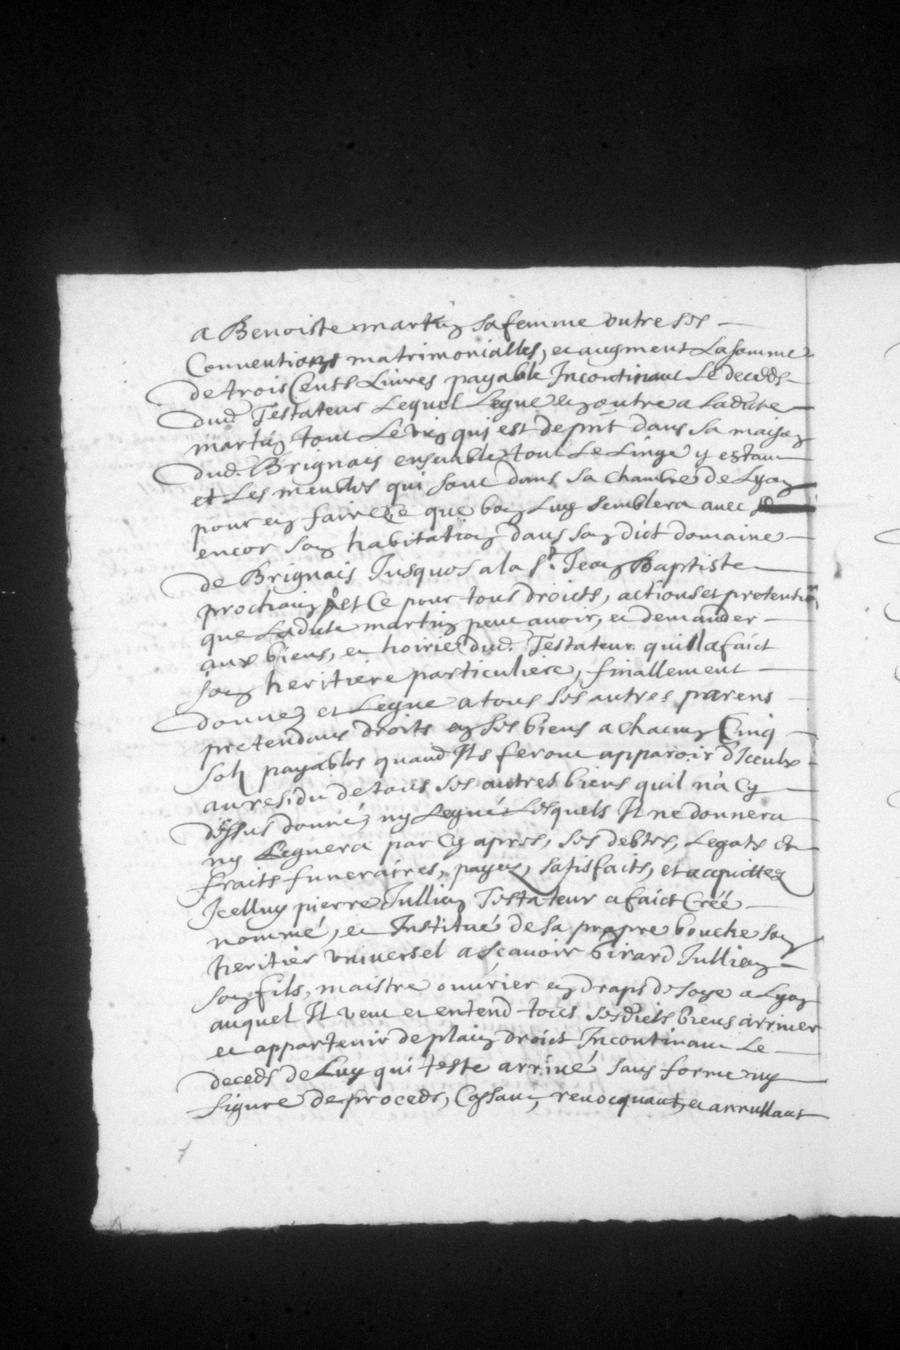 a Benoiste martin sa femme outre ses
Conventions matrimonialles, et augment La somme
de trois Cents Livres payable Incontinant Le deceds
dud. Testateur Lequel Legue en outre a Ladite
martin tout Le vin qui est de pnt dans sa maison
dud. Brignais ensemble tout Le Linge y estant
et Les meubles qui sont dans sa chambre de Lyon
pour en faire Ce que bon Luy semblera avec
encor son habitation dans son dict domaine
de Brignais Jusques a la St. Jean Baptiste
prochain et Ce pour tous droicts, actions et pretention
que Ladicte martin peut avoir, et demander
aux biens, et hoirie dud. Testateur quil la faict
son heritiere particuliere, finallement
donne et Legue a tous ses autres parens
pretendans droits en ses biens a chacun Cinq
sols payables quand Ils feront apparoir d'Iceulx
au residu de tous ses autres biens quil n'a Cy
dessus donné, ny Legué Lesquels Il ne donnera
ny Leguera par Cy apres, ses debtes, Legats et
fraits funeraires, payes, satisfaits, et acquittes
Icelluy pierre Jullien Testateur a faict Créé
nommé, et Institué de sa propre bouche son
heritier universel a scavoir Girard Jullien
son fils, maistre ouvrier en draps de soye a Lyon
auquel Il veut et entend tous sesdicts biens arriver
et appartenir de plain droict Incontinant Le
deceds de Luy qui teste arrivé sans forme ny
figure de proceds, Cassant, revocquant, et annullant